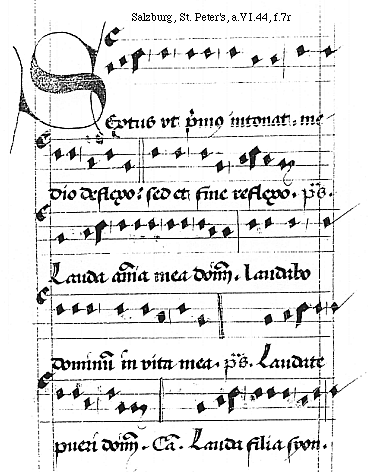 Salzburg, St. Peter's, a.VI.44, f.7r
Sextus vt p̃mo intonat. me
dio deflexo: sed et fine reflexo. p̃s.
Lauda aĩa mea dom̃. laudabo
dominũ in vita mea. p̃s. Laudate
pueri dom̃. Cã. Lauda filia syon.